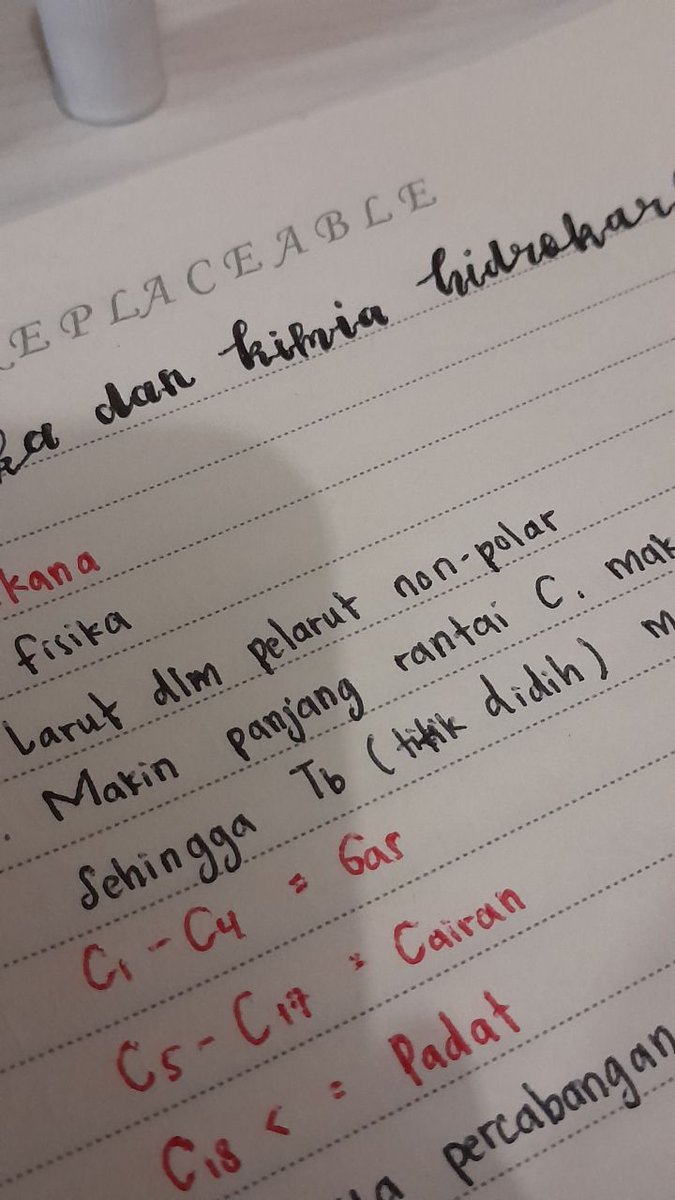 REPLACEABLE
dan kimia hidrokar
kana
fisika
Larut dlm pelarut non-polar
. Makin panjang rantai C. mak
Sehingga Tb (titik didih) m
C1 - C4 = Gas
C5 - C17 = Cairan
C18 < = Padat
percabangan